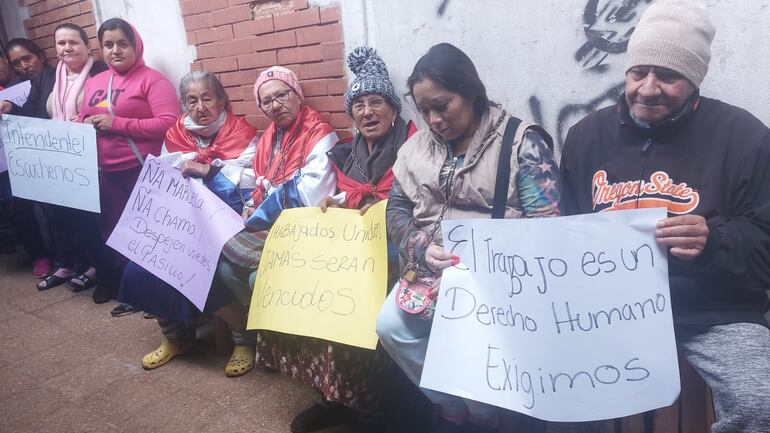 Intendente!
Escúchenos
GAP
ÑA MARIELA!
ÑA Chama!
Despejen ustedes
el Pasillo!
TRABAJADOS Unidos
JAMÁS SERAN
Vencidos
El TRABAJO es un
Derecho Humano
Exigimos
Oregon State